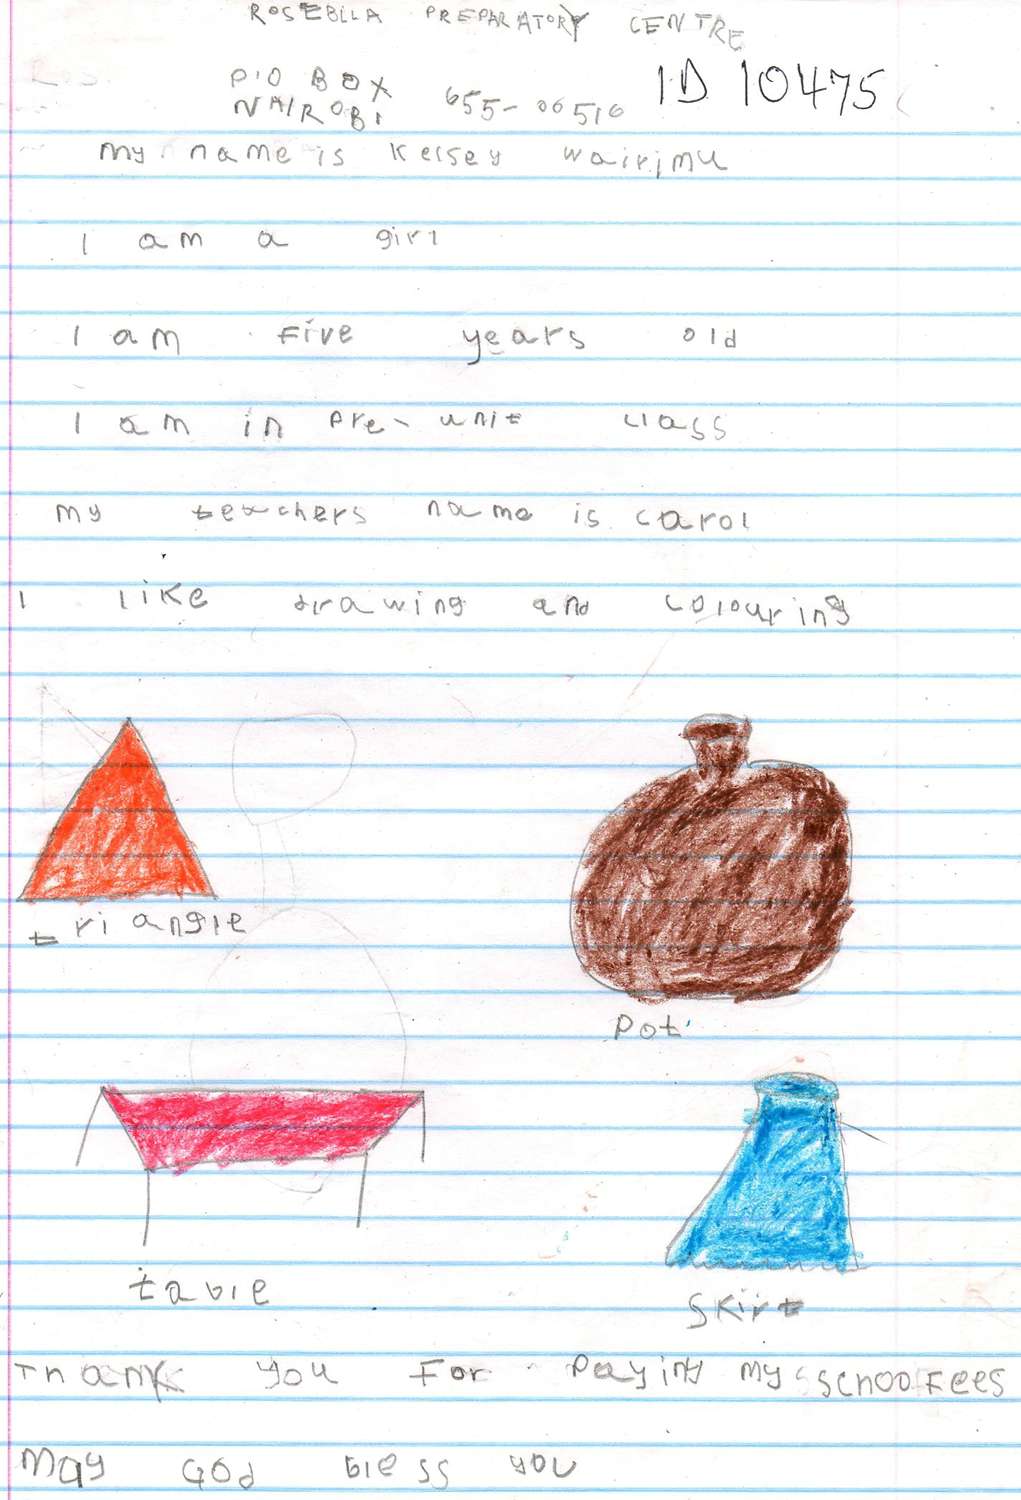 ROSEBLLA PREPARATORY CENTRE
P.O BOX 655-00510
NAIROBI
ID 10475
my name is Kelsey wairimu
I am a girl
I am Five years old
I am in pre-unit class
my teachers name is carol
I like drawing and colouring
triangle
pot
table
skirt
Thank you For paying my schoolFees
May God bless you